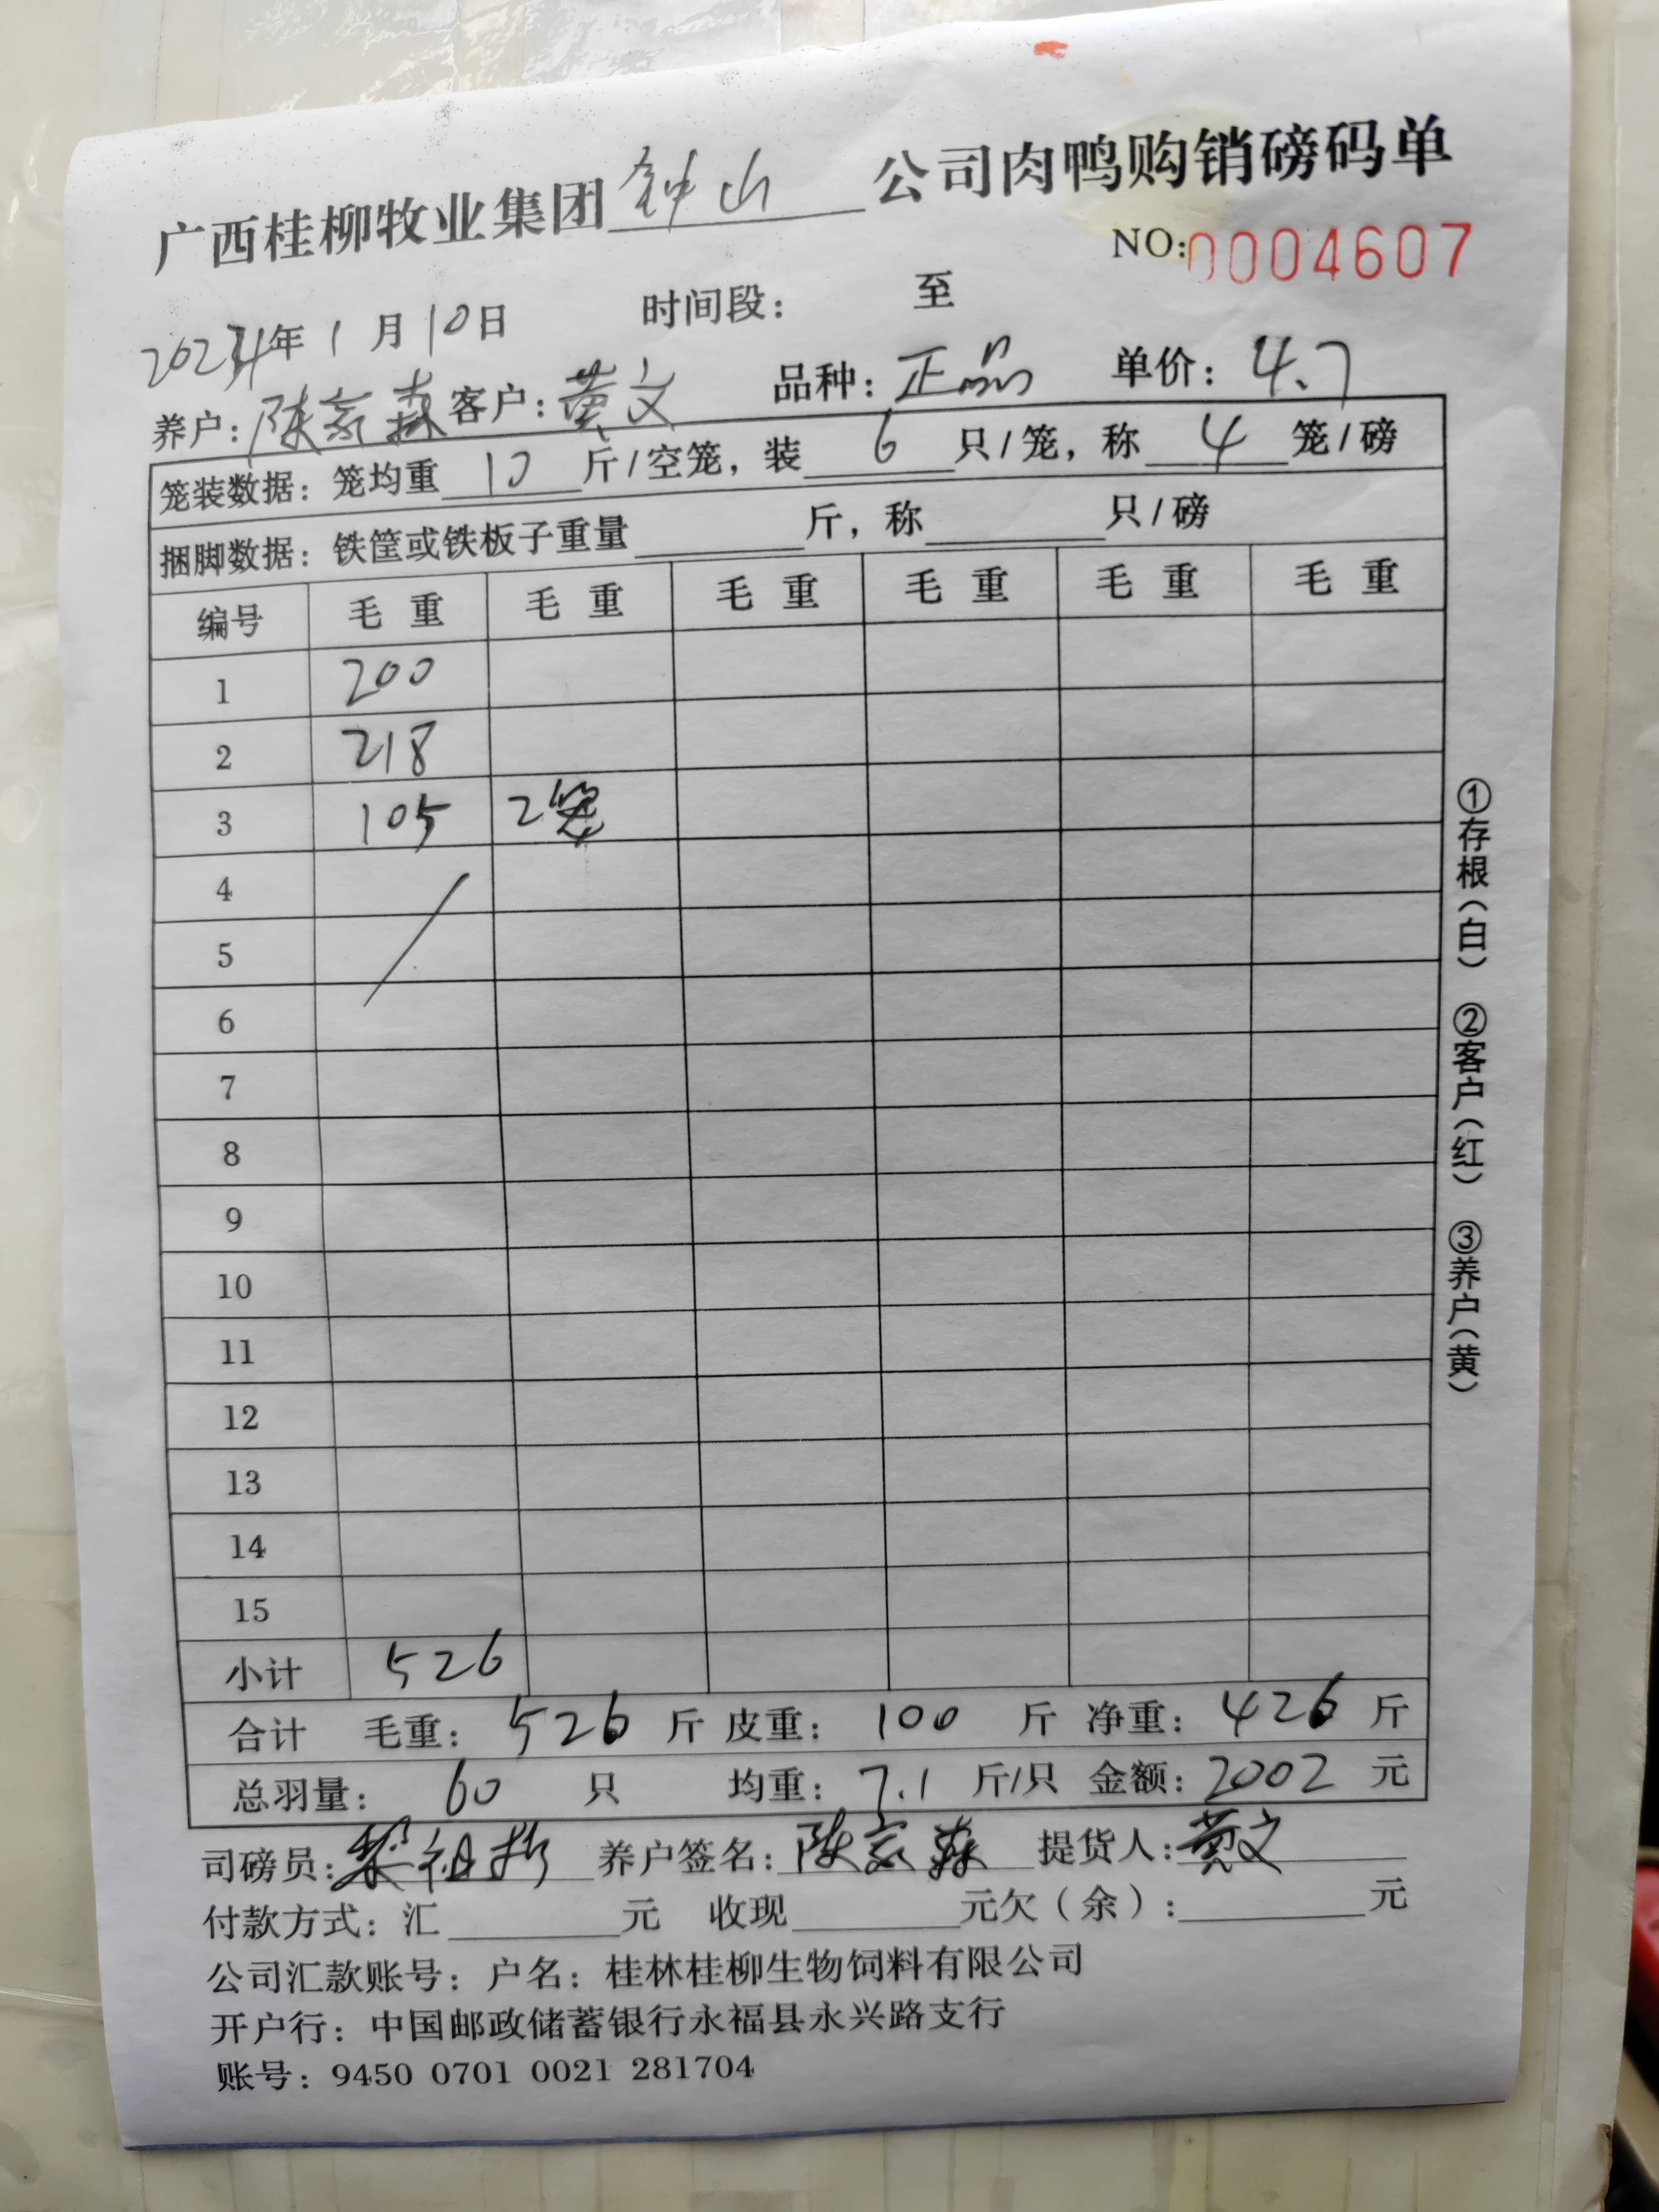 广西桂柳牧业集团钟山公司肉鸭购销磅码单
NO:0004607
2024年1月10日 时间段: 至
养户:陈家森 客户:黄文 品种:正品 单价:4.7
笼装数据:笼均重10斤/空笼,装6只/笼,称4笼/磅
捆脚数据:铁筐或铁板子重量 斤,称 只/磅
编号 毛重 毛重 毛重 毛重 毛重 毛重
1 200
2 218
3 105 2笼
4
5
6
7
8
9
10
11
12
13
14
15
小计 526
合计 毛重:526斤 皮重:100斤 净重:426斤
总羽量:60只 均重:7.1斤/只 金额:2002元
司磅员:黎祖 养户签名:陈家森 提货人:黄文
付款方式:汇 元 收现 元欠(余): 元
公司汇款账号:户名:桂林桂柳生物饲料有限公司
开户行:中国邮政储蓄银行永福县永兴路支行
账号:9450 0701 0021 281704
①存根(白) ②客户(红) ③养户(黄)